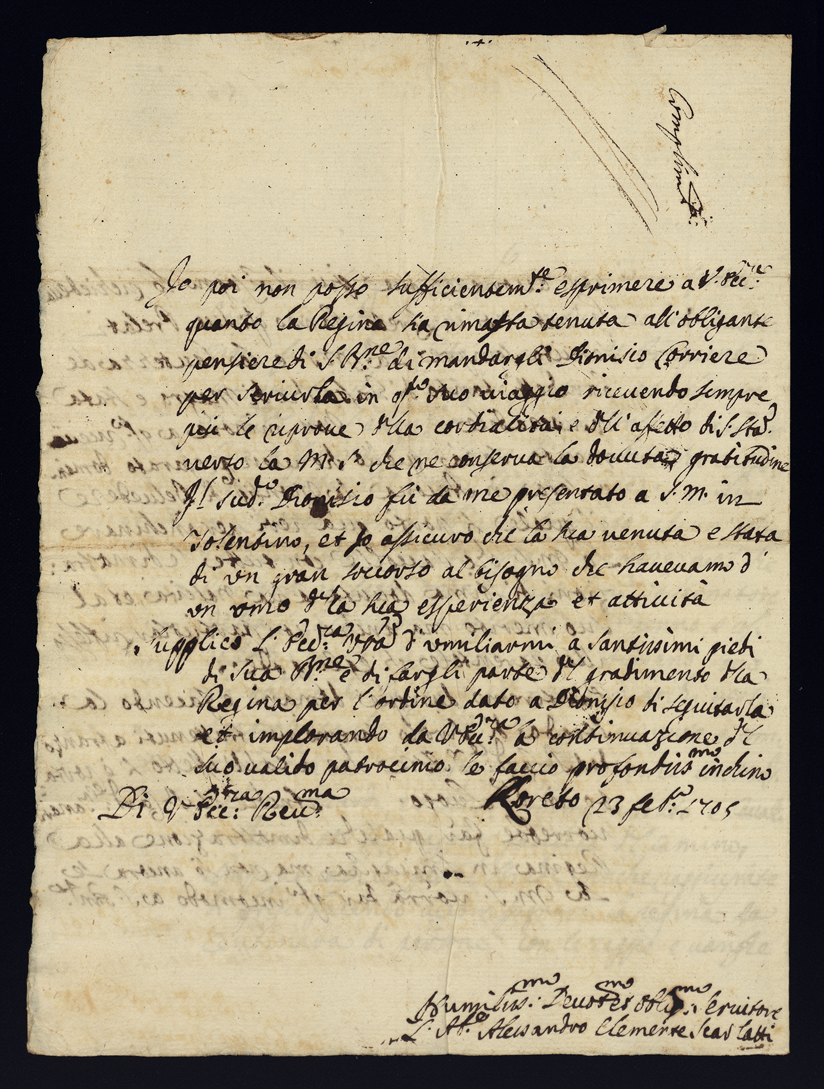 Complim.ti
Io poi non posso sufficientem.te esprimere a V. Ecc.za
quanto la Regina sia rimasta tenuta all'obligante
pensiere di S. B.ne di mandargli Dionisio Corriere
per servirla in q.to suo viaggio ricevendo sempre
più le riprove d'lla cordialità e dll'affetto di S. S.tà
verso la M. S. che ne conserva la dovuta gratitudine
Il sud.o Dionisio fù da me presentato a S. M. in
Tolentino, et Io assicuro che la sua venuta e stata
di un gran soccorso al bisogno che havevamo d'
un uomo d'lla sua esperienza et attività
Supplico L'Ecc.za V'ra d'umiliarmi a santissimi piedi
di Sua B.ne e di fargli parte d'l gradimento d'lla
Regina per l'ordine dato a Dionisio di seguitarla
et implorando da V. Ecc.za la continuazione d'l
suo valido patrocinio le faccio profondiss.mo inchino
Di V'ra Ecc.za Rev.ma Loreto 23 feb.o 1705
Humiliss.mo Devot.mo et obblig.mo Servitore
L'Ab.e Alessandro Clemente Scarlatti